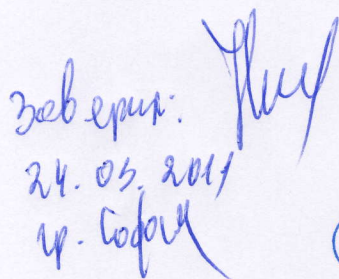 Заверил:
24.03.2011
гр. София